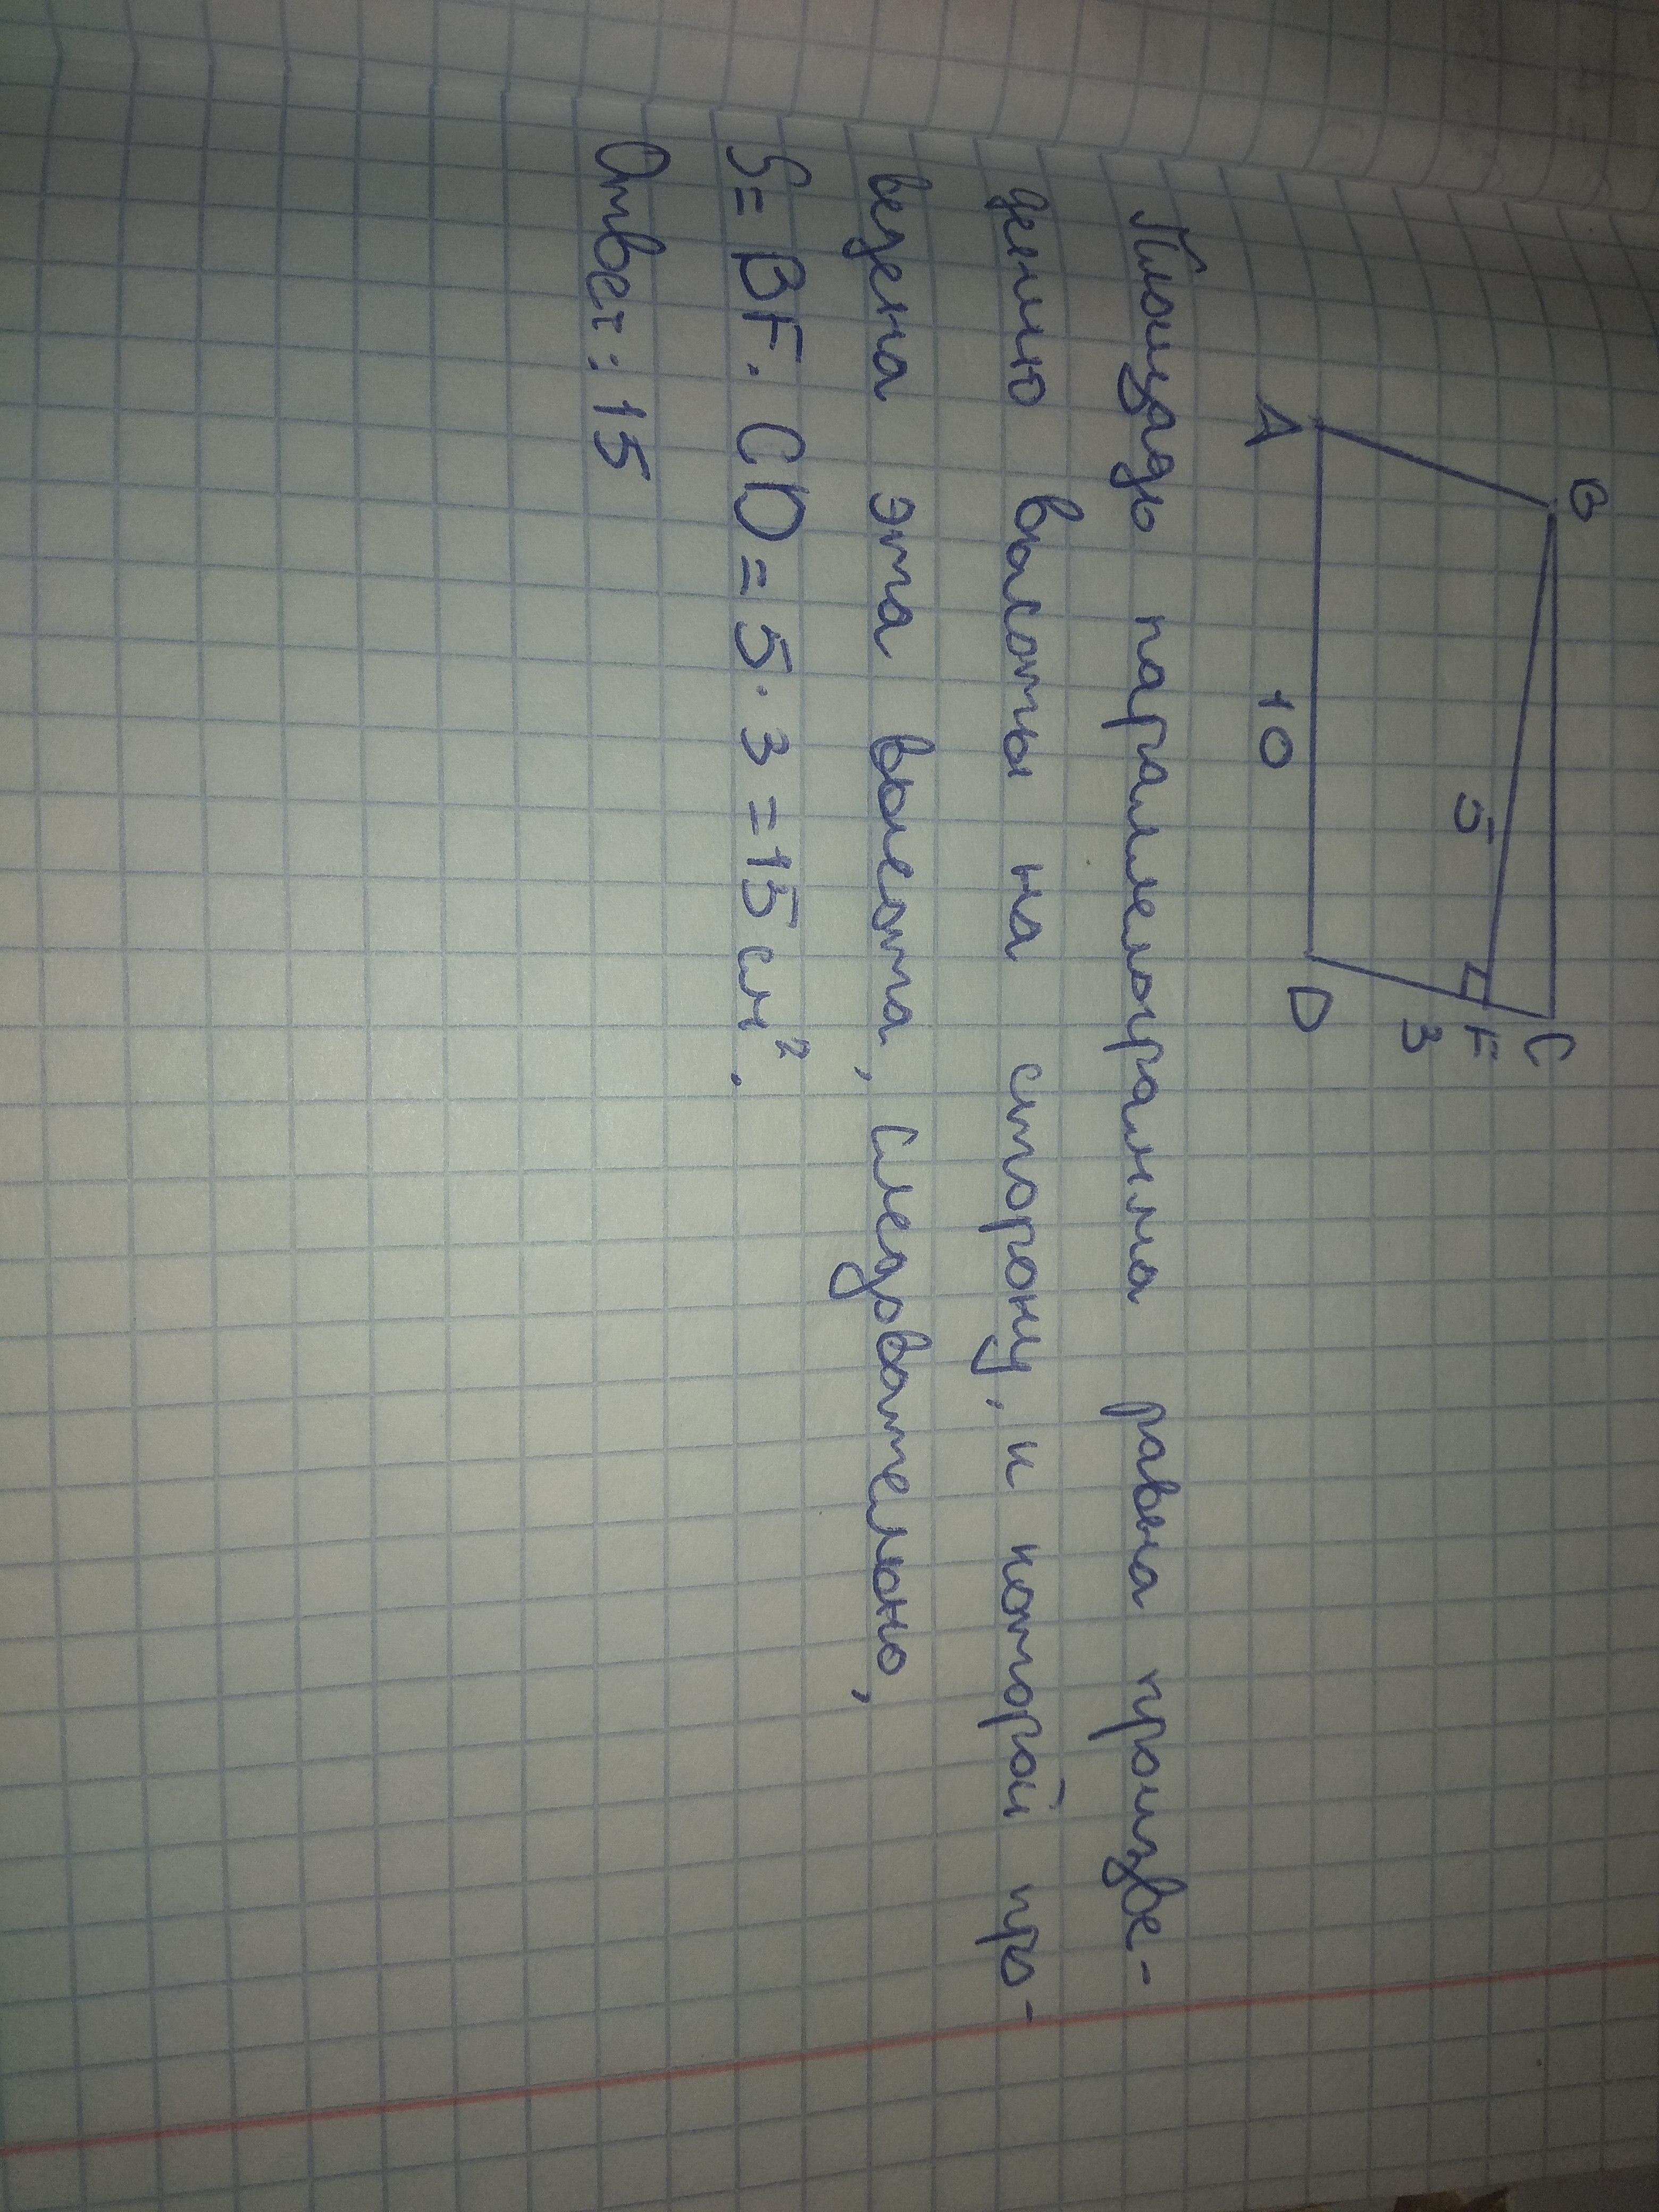 B
C
F
5
3
A
D
10
Площадь параллелограмма равна произве-
дению высоты на сторону, к которой про-
ведена эта высота, следовательно,
S = BF · CD = 5 · 3 = 15 см².
Ответ: 15